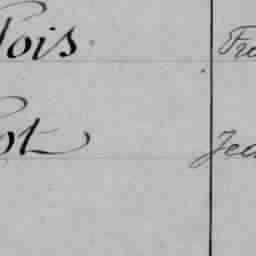 lois Fra
ot Jea